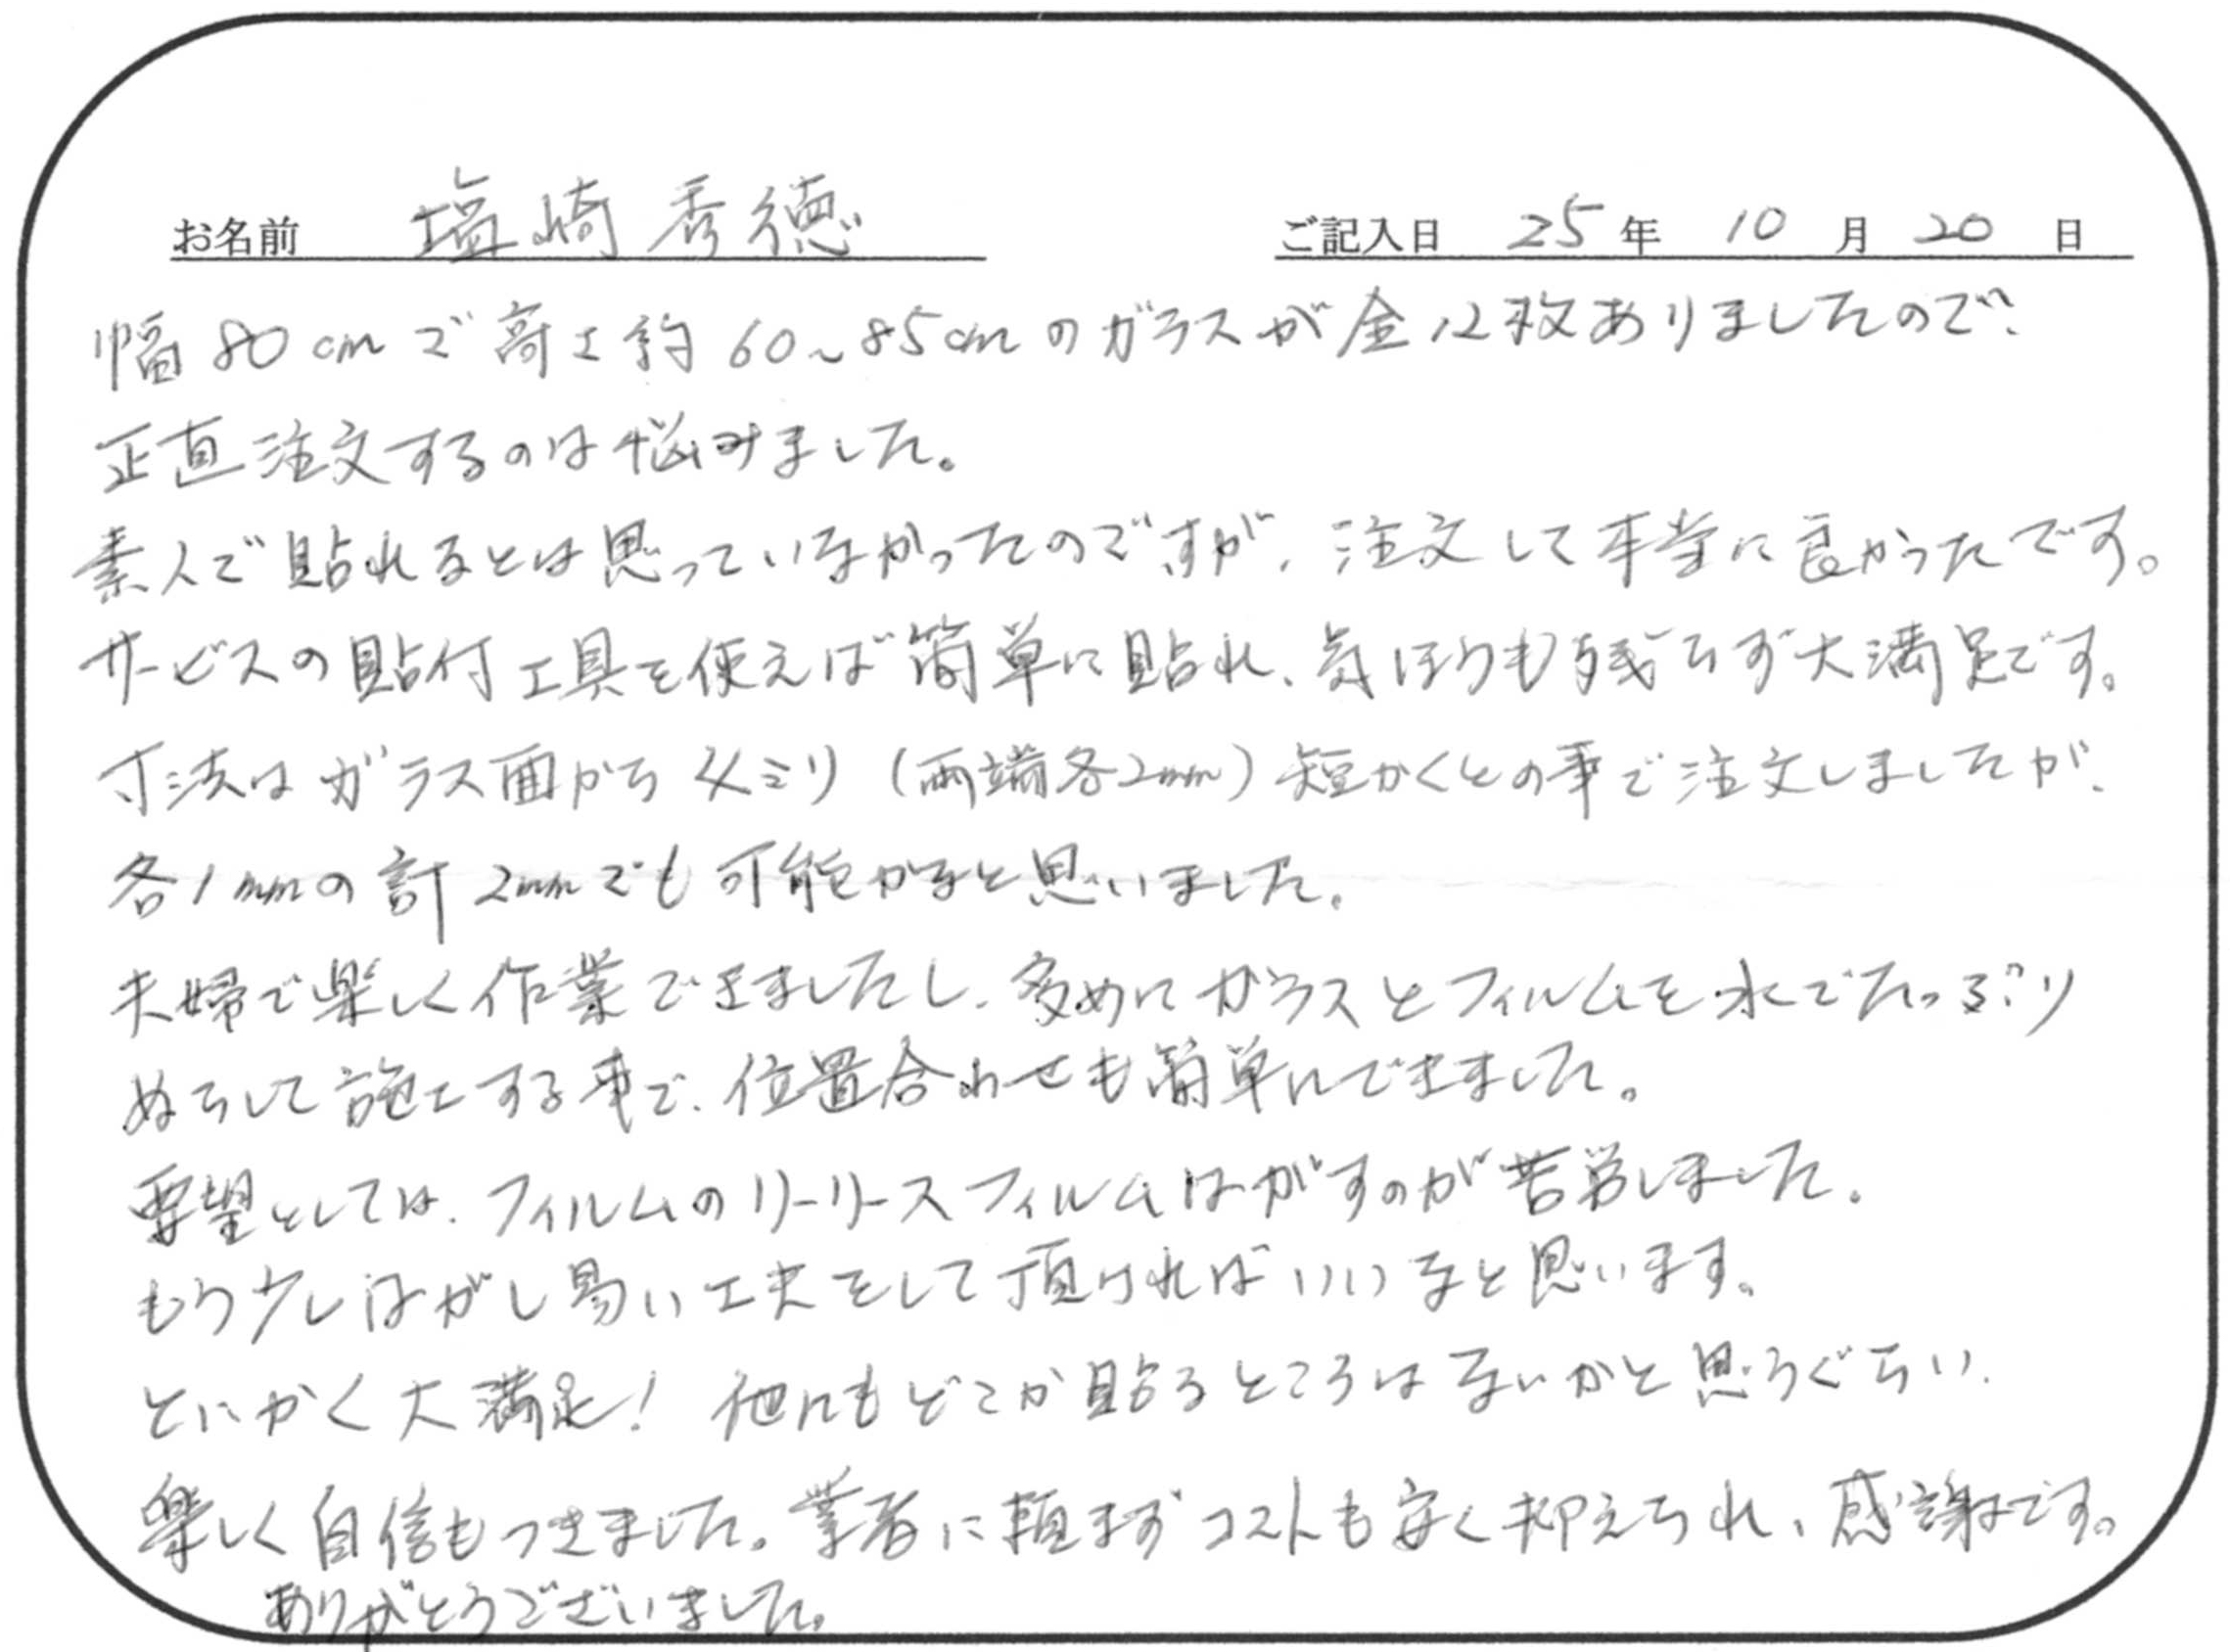 お名前 塩崎秀徳 ご記入日 25年 10月 20日
幅80cmで高さ約60~85cmのガラスが全12枚ありましたので、
正直注文するのは悩みました。
素人で貼れるとは思っていなかったのですが、注文して本当に良かったです。
サービスの貼付工具を使えば簡単に貼れ、気ほうも残らず大満足です。
寸法はガラス面から4ミリ(両端各2mm)短かくとの事で注文しましたが、
各1mmの計2mmでも可能かなと思いました。
夫婦で楽しく作業できましたし、多めにガラスとフィルムを水でたっぷり
ぬらして施工する事で、位置合わせも簡単にできました。
要望としては、フィルムのリーリースフィルムはがすのが苦労しました。
もう少しはがし易い工夫をして頂ければいいなと思います。
とにかく大満足!他にもどこか貼るところはないかと思うぐらい、
楽しく自信もつきました。業者に頼まずコストも安く抑えられ、感謝です。
ありがとうございました。